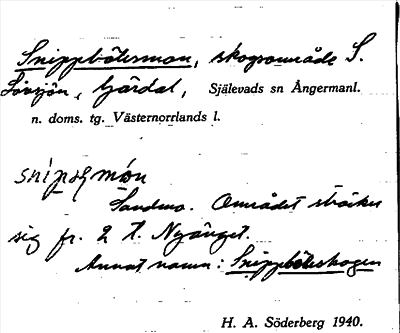 Snippbötesmon, skogsområde S.
Lövsjön, Gärdal, Själevads sn Ångermanl.
n. doms. tg. Västernorrlands l.
Sandmo. Området sträcker
sig fr. 2 t. Nyänget.
Annat namn: Snippböleskogen
H. A. Söderberg 1940.